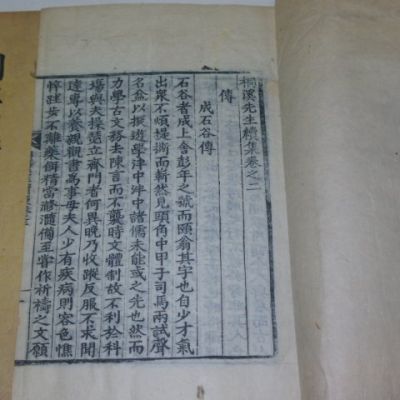 桐溪先生續集卷之二
傳
成石谷傳
石谷者成上舍彭年之號而頤翁其字也自少才氣
出衆不煩提撕而嶄然見頭角中甲子司馬兩試聲
名益以擬遊學泮中泮中諸儒未能或之先也然而
力學古文務去陳言而不襲時文體制故不利於科
場與夫操瑟立齊門者何異晩乃收蹤反服不求聞
達專以養親觀書爲事母夫人少有疾病則容色憔
悴跬步不離藥餌精當滫瀡備至嘗作祈禱之文願